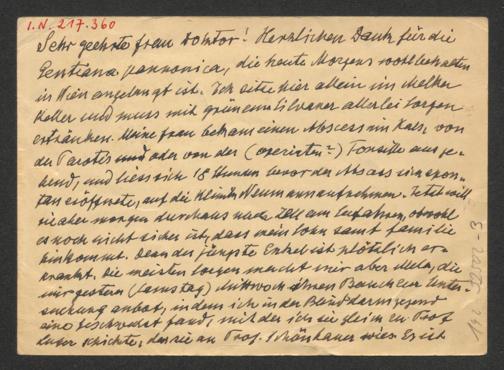 I.N. 217.360
Sehr geehrte Frau Doktor! Herzlichen Dank für die
Gentiana pannonica, die heute Morgens wohlbehalten
in Wien angelangt ist. Ich sitze hier allein im Melker
Keller und muss mit grünem Silvaner allerlei Sorgen
ertränken. Meine Frau bekam einen Abscess im Hals, von
der Parotis und oder von der (operierten?) Tonsille ausge-
hend, und liess sich 18 Stunden bevor der Abscess sich spon-
tan eröffnete, auf die Klinik Neumann aufnehmen. Jetzt will
sie aber morgen durchaus nach Zell am See fahren, obwohl
es noch nicht sicher ist, dass mein Sohn samt Familie
hinkommt. Denn der jüngste Enkel ist plötzlich er-
krankt. Die meisten Sorgen macht mir aber Mela, die
mir gestern (Samstag) Mittwoch ihren Bauch zur Unter-
suchung anbot, indem ich in der Blinddarmgegend
eine Geschwulst fand, mit der ich sie gleich zu Prof.
schickte, der sie an Prof. Schönbauer wies. Es ist